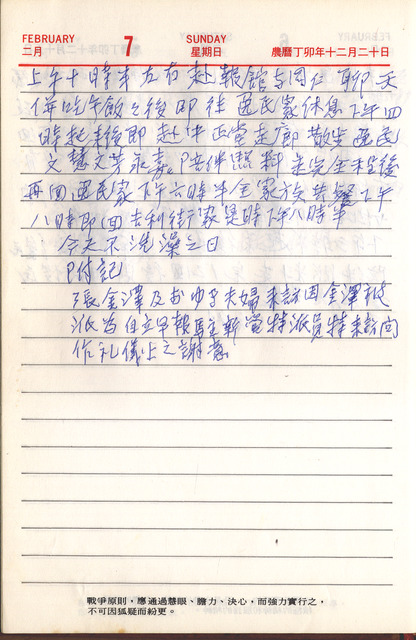 FEBRUARY 7 SUNDAY
二月 星期日 農曆丁卯年十二月二十日
上午十時半左右赴報館与同仁聊天
併吃午飯之後即往逸民家休息下午四
時起來後即赴中正堂走廊散步逸民
文慧文芳永壽陪伴照料走完全程後
再回逸民家下午六時半全家族共餐下午
八時即回吉利街家是時下午八時半
今天不洗澡之日
附記
張金澤及おゆき夫婦來訪因金澤被
派當自立早報駐新營特派員特來訪問
作礼儀上之謝意
戰爭原則，應通過慧眼、膽力、決心，而強力實行之，
不可因狐疑而紛更。